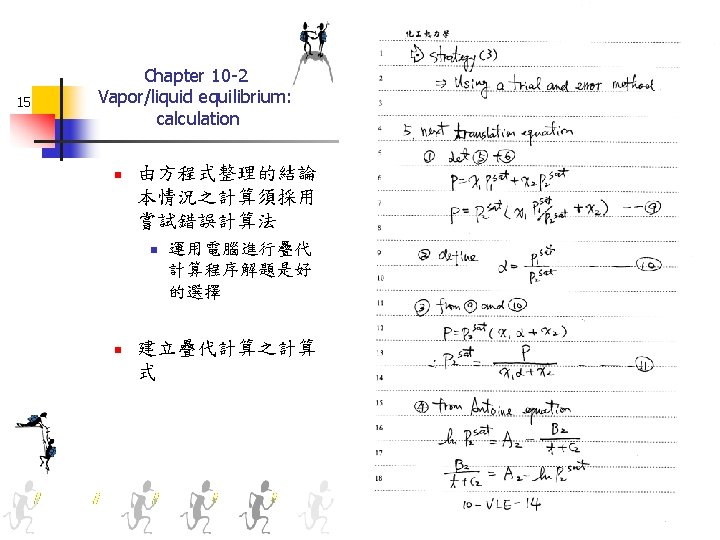 15
Chapter 10-2
Vapor/liquid equilibrium:
calculation
由方程式整理的結論
本情況之計算須採用
嘗試錯誤計算法
運用電腦進行疊代
計算程序解題是好
的選擇
建立疊代計算之計算
式
化工熱力學
1 strategy (3)
⇒ Using a trial and error method
3
4 5, next translation equation
5 ① let ⑤ + ⑥
6 P = x₁P₁^sat + x₂P₂^sat
7 P = P₂^sat (x₁ P₁^sat/P₂^sat + x₂) --- ⑨
② define α = P₁^sat/P₂^sat --- ⑩
10
11 ③ from ⑨ and ⑩
12 P = P₂^sat (x₁α + x₂)
13 ∴ P₂^sat = P/(x₁α + x₂) --- ⑪
14
15 ④ from Antoine equation
16 ln P₂^sat = A₂ - B₂/(t + C₂)
17
18 B₂/(t + C₂) = A₂ - ln P₂^sat
10-VLE-14